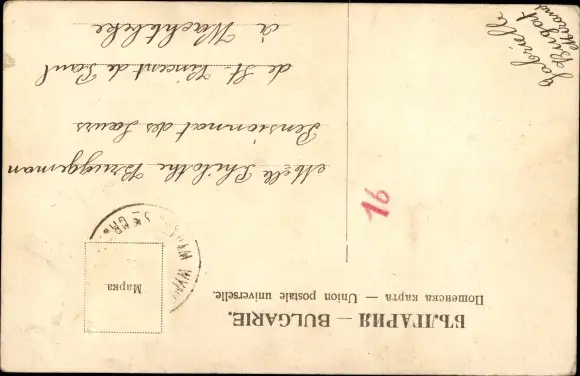 БЪЛГАРИЯ — BULGARIE.
Пощенска карта — Union postale universelle.
Марка
Melle Philothe Bruggeman
Pensionnat des Sœurs
de St. Vincent de Paul
à Wachtebeke
16
Gabrielle